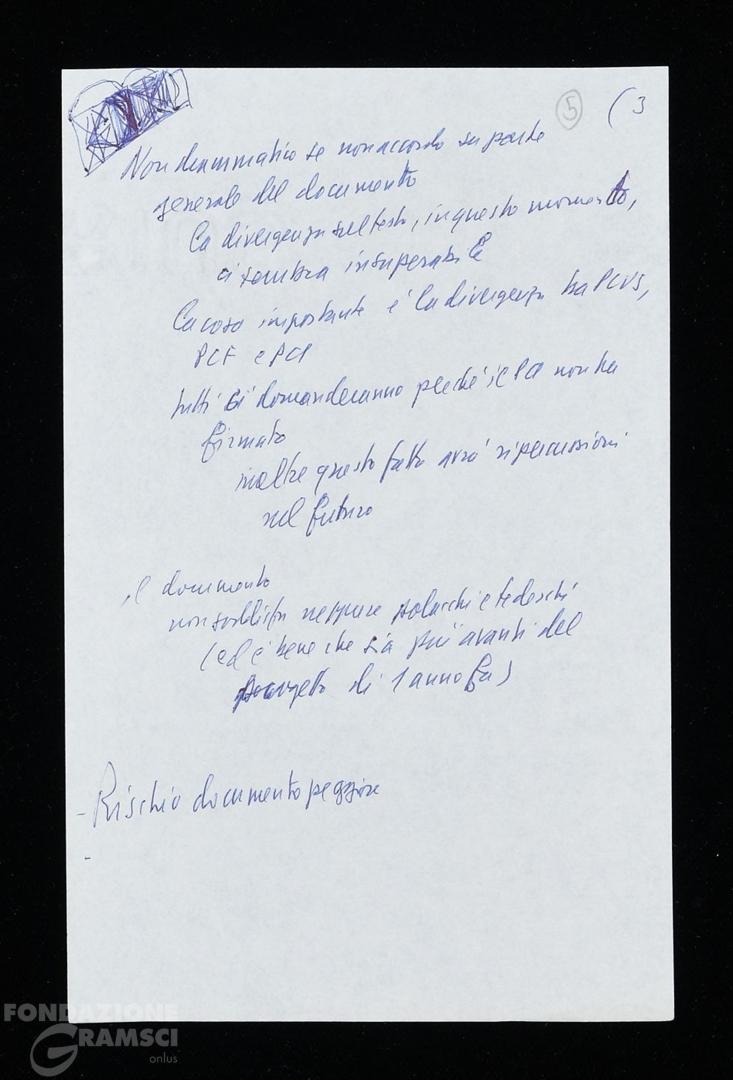 5 (3
Non drammatico se non accordo su parte
generale del documento
La divergenza sul testo, in questo momento,
ci sembra insuperabile
La cosa importante è la divergenza tra PCUS,
PCF e PCI
tutti si domanderanno perché il PCI non ha
firmato
inoltre questo fatto avrà ripercussioni
nel futuro
il documento
non soddisfa neppure polacchi e tedeschi
(ed è bene che sia più avanti del
progetto di 1 anno fa)
- Rischio documento peggiore
-
FONDAZIONE
GRAMSCI
onlus